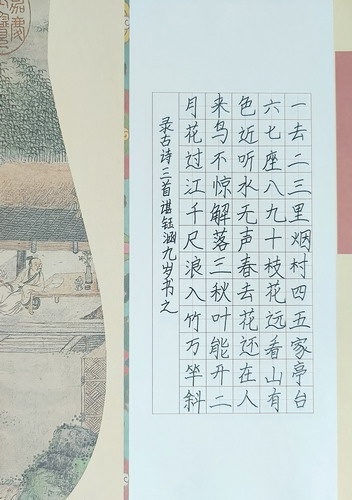 一去二三里烟村四五家亭台
六七座八九十枝花远看山有
色近听水无声春去花还在人
来鸟不惊解落三秋叶能开二
月花过江千尺浪入竹万竿斜
录古诗三首谌钰涵九岁书之